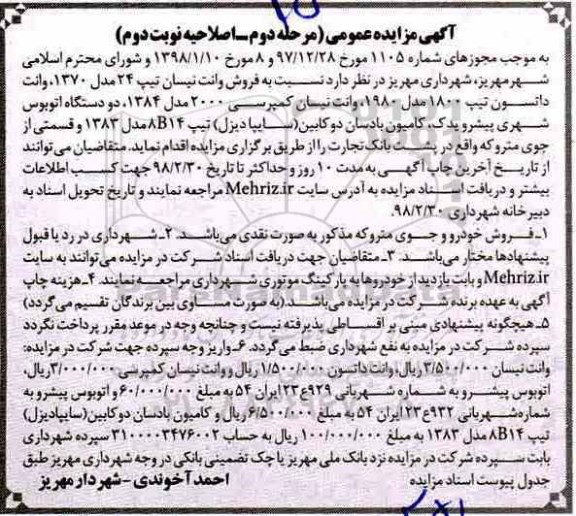 آگهی مزایده عمومی (مرحله دوم ـ اصلاحیه نوبت دوم)
به موجب مجوزهای شماره ۱۱۰۵ مورخ ۹۷/۱۲/۲۸ و ۸ مورخ ۱۳۹۸/۱/۱۰ و شورای محترم اسلامی
شهر مهریز، شهرداری مهریز در نظر دارد نسبت به فروش وانت نیسان تیپ ۲۴ مدل ۱۳۷۰، وانت
داتسون تیپ ۱۸۰۰ مدل ۱۹۸۰، وانت نیسان کمپرسی ۲۰۰۰ مدل ۱۳۸۴، دو دستگاه اتوبوس
شهری پیشرو یدک، کامیون بادسان دوکابین (سایپا دیزل) تیپ 8B14 مدل ۱۳۸۳ و قسمتی از
جوی متروکه واقع در پشت بانک تجارت را از طریق برگزاری مزایده اقدام نماید. متقاضیان می‌توانند
از تاریخ آخرین چاپ آگهی به مدت ۱۰ روز و حداکثر تا تاریخ ۹۸/۲/۳۰ جهت کسب اطلاعات
بیشتر و دریافت اسناد مزایده به آدرس سایت Mehriz.ir مراجعه نمایند و تاریخ تحویل اسناد به
دبیرخانه شهرداری ۹۸/۲/۳۰.
۱ـ فروش خودرو و جوی متروکه مذکور به صورت نقدی می‌باشد. ۲ـ شهرداری در رد یا قبول
پیشنهادها مختار می‌باشد. ۳ـ متقاضیان جهت دریافت اسناد شرکت در مزایده می‌توانند به سایت
Mehriz.ir و بابت بازدید از خودروها به پارکینگ موتوری شهرداری مراجعه نمایند. ۴ـ هزینه چاپ
آگهی به عهده برنده شرکت در مزایده می‌باشد. (به صورت مساوی بین برندگان تقسیم می‌گردد)
۵ـ هیچگونه پیشنهادی مبنی بر اقساطی پذیرفته نیست و چنانچه وجه در موعد مقرر پرداخت نگردد
سپرده شرکت در مزایده به نفع شهرداری ضبط می‌گردد. ۶ـ واریز وجه سپرده جهت شرکت در مزایده:
وانت نیسان ۳/۵۰۰/۰۰۰ ریال، وانت داتسون ۱/۵۰۰/۰۰۰ ریال و وانت نیسان کمپرسی ۳/۰۰۰/۰۰۰ ریال،
اتوبوس پیشرو به شماره شهربانی ۹۲۹ع۲۳ ایران ۵۴ به مبلغ ۶۰/۰۰۰/۰۰۰ و اتوبوس پیشرو به
شماره شهربانی ۹۳۲ع۲۳ ایران ۵۴ به مبلغ ۶/۵۰۰/۰۰۰ ریال و کامیون بادسان دوکابین (سایپادیزل)
تیپ 8B14 مدل ۱۳۸۳ به مبلغ ۱۰۰/۰۰۰/۰۰۰ ریال به حساب ۳۱۰۰۰۰۳۴۷۶۰۰۲ سپرده شهرداری
بابت سپرده شرکت در مزایده نزد بانک ملی مهریز یا چک تضمینی بانکی در وجه شهرداری مهریز طبق
جدول پیوست اسناد مزایده
احمد آخوندی - شهردار مهریز